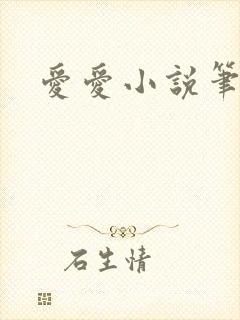 愛愛小說筆
石生情